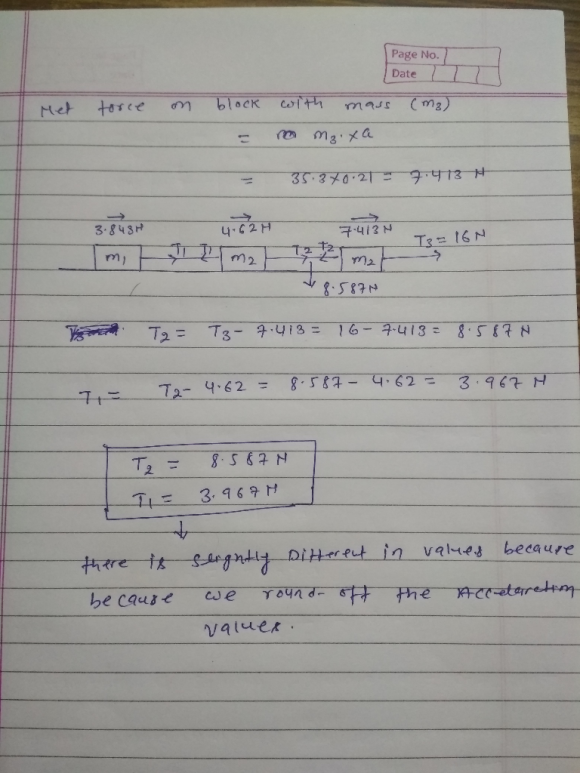 Page No.
Date
Net force on block with mass (m3)
= m3.×a
= 35.3×0.21 = 7.413 N
3.843N 4.62N 7.413N T3 = 16N
m1 T1 T1 m2 T2 T2 m2
8.587N
T2 = T3 - 7.413 = 16 - 7.413 = 8.587 N
T1 = T2 - 4.62 = 8.587 - 4.62 = 3.967 N
T2 = 8.587 N
T1 = 3.967 N
there is slightly Different in values because
because we round-off the Acceleration
values.